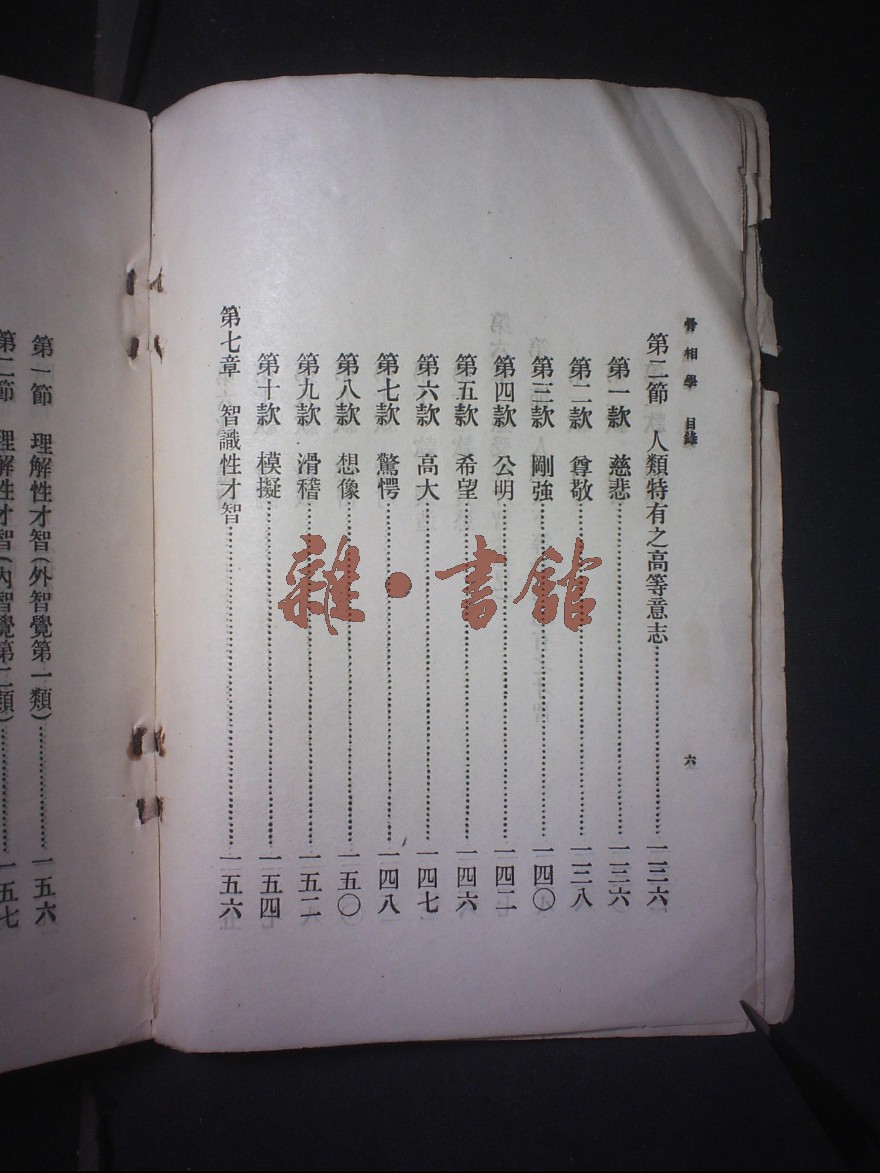 骨相學 目錄 六
第二節 人類特有之高等意志⋯⋯⋯⋯一三六
第一款 慈悲⋯⋯⋯⋯一三六
第二款 尊敬⋯⋯⋯⋯一三八
第三款 剛強⋯⋯⋯⋯一四〇
第四款 公明⋯⋯⋯⋯一四二
第五款 希望⋯⋯⋯⋯一四六
第六款 高大⋯⋯⋯⋯一四七
第七款 驚愕⋯⋯⋯⋯一四八
第八款 想像⋯⋯⋯⋯一五〇
第九款 滑稽⋯⋯⋯⋯一五二
第十款 模擬⋯⋯⋯⋯一五四
第七章 智識性才智⋯⋯⋯⋯一五六
第一節 理解性才智(外智覺第一類)⋯⋯⋯⋯一五六
第二節 理解性才智(內智覺第二類)⋯⋯⋯⋯一五七
雜·書館